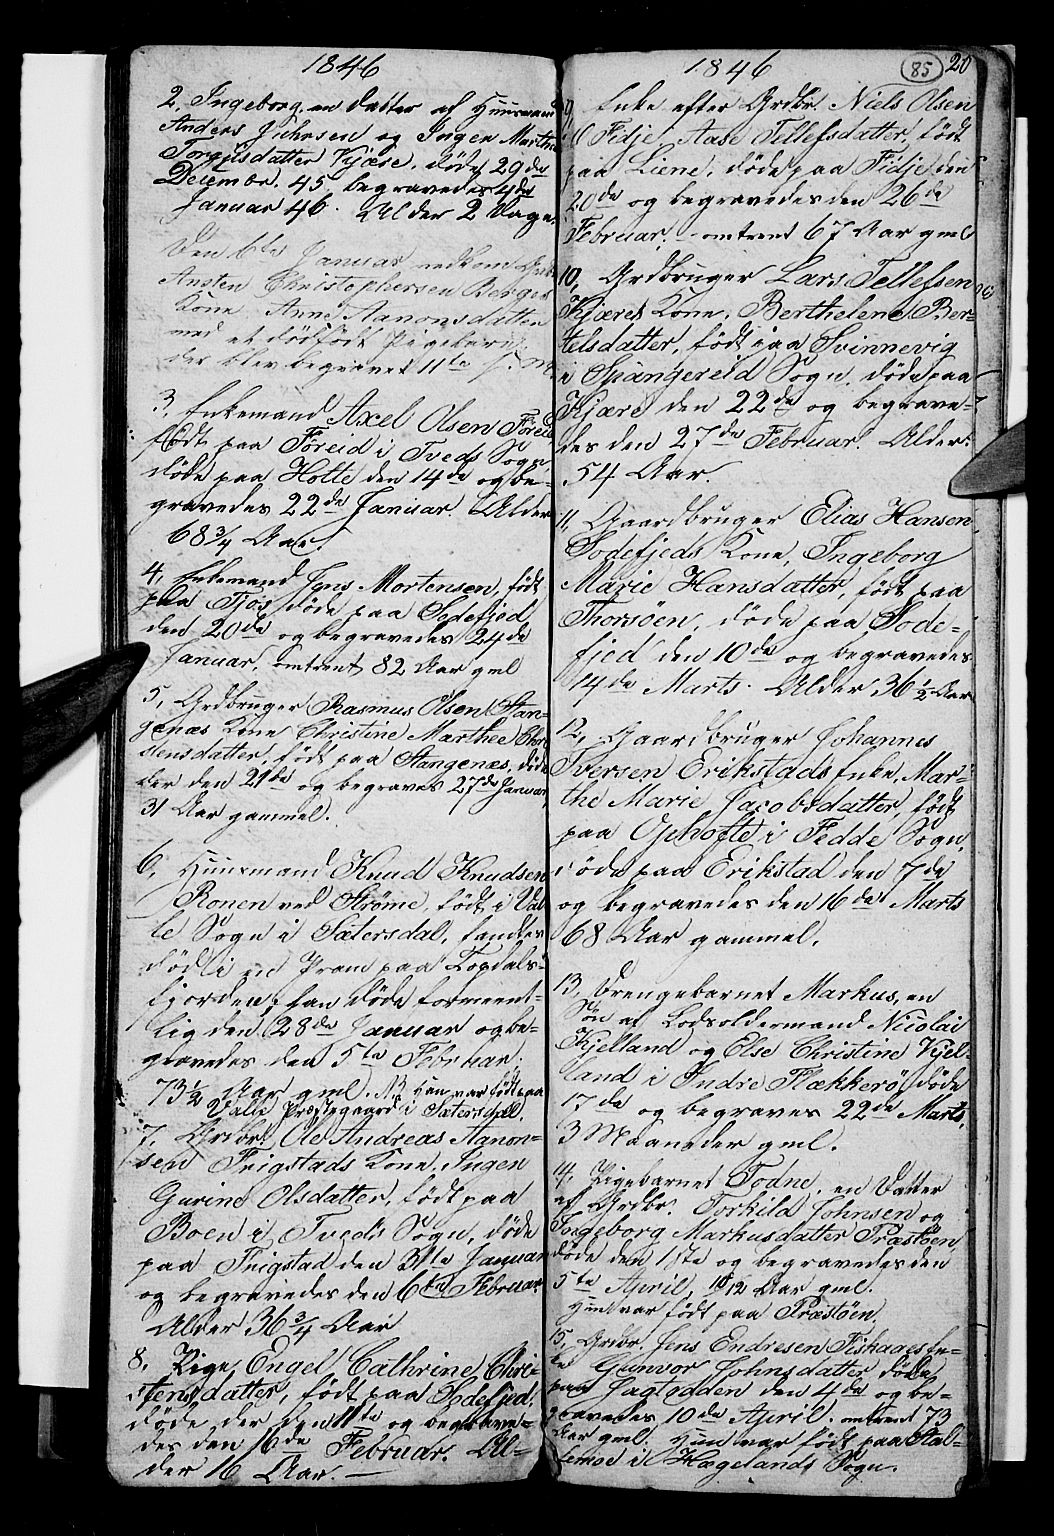 1846
2, Ingeborg, en Datter af Huusmand
Anders Juhrsen og Ingen Marthe
Torgusdatter Kjøse, døde 29de
Decembr. 45 begravedes 4de
Januar 46. Alder 2 Dage.
Den 6te Januar nedkom
Ansten Christophersen Berges
Kone Anne Aanonsdatter
med et dødfødt Pigebarn,
der blev begravet 11te
3, Enkemand Axel Olsen Föreid
født paa Föreid i Tveds Sogn,
døde paa Holte den 14de og be-
gravedes 22de Januar. Alder
68 3/4 Aar.
4, Enkemand Jens Mortensen, født
paa Fjos, døde paa Sodefjed
den 20de og begravedes 24de
Januar, omtrent 82 Aar gml
5, Grdbruger Rasmus Olsen Stan-
genæs Kone Christine Marthee Chri-
stensdatter, født paa Stangenæs, døde
der den 21de og begraves 27de Januar,
31 Aar gammel.
6, Huusmand Knud Knudsen
Ronen ved Strøme, født i Val-
le Sogn i Sætersdal, fandtes
død i en Pram paa Topdals-
fjorden; han døde formeent-
lig den 28de Januar og be-
gravedes den 5te Februar.
73 1/2 Aar gml. NB Han var født paa
Valle Præstegaard i Sætersdal.
7, Grdbr. Ole Andreas Aanon-
sen Frigstads Kone, Ingen
Gurine Olsdatter, født paa
Boen i Tveds Sogn, døde
paa Frigstad den 31te Januar
og begravedes den 6te Februar.
Alder 36 3/4 Aar
8, Pige Engel Cathrine Chri-
stensdatter, født paa Sodefjed,
døde der den 11te og begrave-
des den 16de Februar. Al-
der 16 Aar. —
1846
85 20
9, Enke efter Grdbr. Niels Olsen
Fidje, Aase Tellefsdatter, født
paa Liene, døde paa Fidje den
20de og begravedes den 26de
Februar. – omtrent 67 Aar gml
10, Grdbruger Lars Tellefsen
Kjæres Kone, Berthelene Ber-
telsdatter, født paa Svinnevig
i Spangereid Sogn, døde paa
Kjære den 22de og begrave-
des den 27de Februar. Alder:
54 Aar.
11, Gaardbruger Elias Hansen
Sodefjeds Kone, Ingeborg
Marie Hansdatter, født paa
Thorsöen, døde paa Sode-
fjed den 10de og begravedes
14de Marts. Alder 36 1/2 Aar
12, Gaardbruger Johannes
Iversen Erikstads Enke, Mar-
the Marie Jacobsdatter, født
paa Ophofte i Fedde Sogn,
døde paa Erikstad den 7de
og begravedes den 16de Marts
68 Aar gammel.
13, Drengebarnet Markus, en
Søn af Lodsoldermand Nicolai
Kjelland og Else Christine Kjel-
land i Indre Flækkerö, døde
17de og begraves 22de Marts,
3 Maaneder gml.
14, Pigebarnet Todne, en Datter
af Grdbr. Torkild Johnsen og
Ingeborg Markusdatter Præstöen,
døde den 1ste og begravedes den
5te April, 10/12 Aar gml.
Hun var født paa Præstöen.
15, Grdbr. Jens Endresen Fiskages En-
ke Gunvor Johnsdatter døde
paa Jagtodden den 4de og be-
gravedes 10de April. omtrent 73
Aar gml. Hun var født paa Stal-
lemoe i Hægelands Sogn.